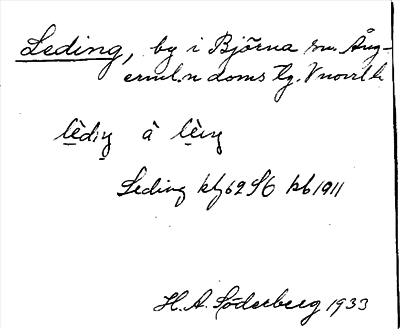 Leding, by i Björna sn. Ång-
erml.n doms hg. Vnorrl. l.
lèdiŋ å lèiŋ
Leding kf 62 56 kb 1911
H. A. Söderberg 1933